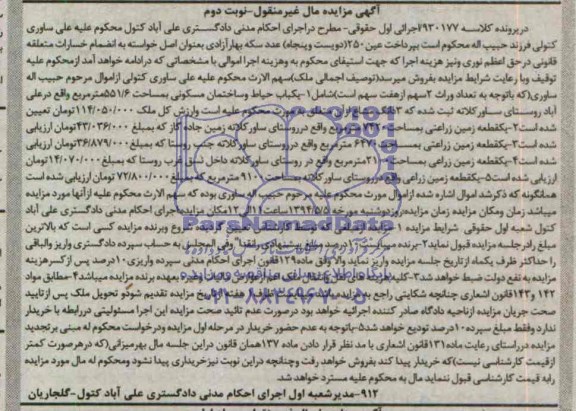 آگهی مزایده مال غیرمنقول-نوبت دوم
درپرونده کلاسه ۹۳۰۱۷۷اجرائی اول حقوقی- مطرح دراجرای احکام مدنی دادگستری علی آباد کتول محکوم علیه علی ساوری
کتولی فرزند حبیب اله محکوم است بپرداخت عین۲۵۰(دویست وپنجاه) عدد سکه بهارآزادی بعنوان اصل خواسته به انضمام خسارات متعلقه
قانونی درحق اعظم نوری ونیز هزینه اجرا که جهت استیفای محکوم به وهزینه اجرا اموالی با مشخصاتی که درادامه خواهد آمد ازمحکوم علیه
توقیف وبا رعایت شرایط مزایده بفروش میرسد(توصیف اجمالی ملک)سهم الارث محکوم علیه علی ساوری کتولی ازاموال مرحوم حبیب اله
ساوری(که باتوجه به تعداد وراث ۲سهم ازهفت سهم است)شامل۱-یکباب حیاط وساختمان مسکونی بمساحت ۵۵۱/۶مترمربع واقع درعلی
آباد روستای ساورکلاته ثبت شده که ۳دانگ محکوم علیه است وارزش کل ملک ۱۱۴/۰۵۰/۰۰۰تومان تعیین
شده است۲-یکقطعه زمین زراعتی بمساحت مترمربع واقع درروستای ساورکلاته زمین جاده گاز که بمبلغ ۴۳/۰۳۶/۰۰۰تومان ارزیابی
شده است۳-یکقطعه زمین زراعی بمساحت ۶۴۷۰ مترمربع واقع درروستای ساورکلاته جنب روستا که بمبلغ ۳۶/۸۷۹/۰۰۰تومان ارزیابی
شده است۴-یکقطعه زمین زراعتی بمساحت مترمربع واقع در روستای ساورکلاته داخل نسق غرب روستا که بمبلغ ۱۴/۰۷۰/۰۰۰تومان
ارزیابی شده است۵-یکقطعه زمین زراعی واقع درروستای ساورکلاته بمساحت ۹۱۰۰ مترمربع که بمبلغ ۷۲/۸۰۰/۰۰۰ تومان ارزیابی شده است
همانگونه که ذکرشد اموال اشاره شده ازاموال مورث محکوم علیه مرحوم حبیب اله ساوری بوده که سهم الارث محکوم علیه ازآنها مورد مزایده
میباشد زمان ومکان مزایده زمان مزایده روزدوشنبه مورخه ۱۳۹۴/۵/۵ساعت۱۱الی۱۲مکان مزایده اجرای احکام مدنی دادگستری علی آباد
کتول شعبه اول حقوقی شرایط مزایده ۱- شروع وبرنده مزایده کسی است که بالاترین
مبلغ رادرجلسه مزایده قبول نماید۲-برنده میبایست ده درصد مبلغ پیشنهادی رانقدا وفی المجلس به حساب سپرده دادگستری واریز والباقی
را حداکثر ظرف یکماه ازتاریخ جلسه مزایده واریز نماید والا وفق ماده ۱۲۹قانون اجرای احکام مدنی سپرده واریزی۱۰درصد پس ازکسرهزینه
مزایده به نفع دولت ضبط خواهد شد۳-کلیه هزینه بعهده برنده مزایده میباشد۴-مطابق مواد
۱۴۲ و۱۴۳قانون اشعاری چنانچه شکایتی راجع به مزایده باشد ظرف هفته ازتاریخ مزایده تقدیم شودو تحویل ملک پس ازتایید
صحت جریان مزایده ازناحیه دادگاه صادر کننده اجرائیه خواهد بود درصورت عدم تائید صحت مزایده این اجرا مسئولیتی دررابطه با خریدار
ندارد وفقط مبلغ سپرده۱۰درصد تودیع خواهد شد۵-باتوجه به عدم حضور خریدار در مرحله اول مزایده ودرخواست محکوم له مبنی برتجدید
مزایده درراستای رعایت ماده ۱۳۱قانون اشعاری با مد نظر قرار دادن ماده ۱۳۷همان قانون دراین جلسه مال بهرمیزانی(که درهرصورت کمتر
ازقیمت کارشناسی نیست)که خریدار پیدا کند بفروش خواهد رفت وچنانچه دراین نوبت نیزخریداری پیدا نشود ومحکوم له مال مورد مزایده
رابه قیمت کارشناسی قبول ننماید مال به محکوم علیه مسترد خواهد شد.
۹۱۲-مدیرشعبه اول اجرای احکام مدنی دادگستری علی آباد کتول-گلجاریان